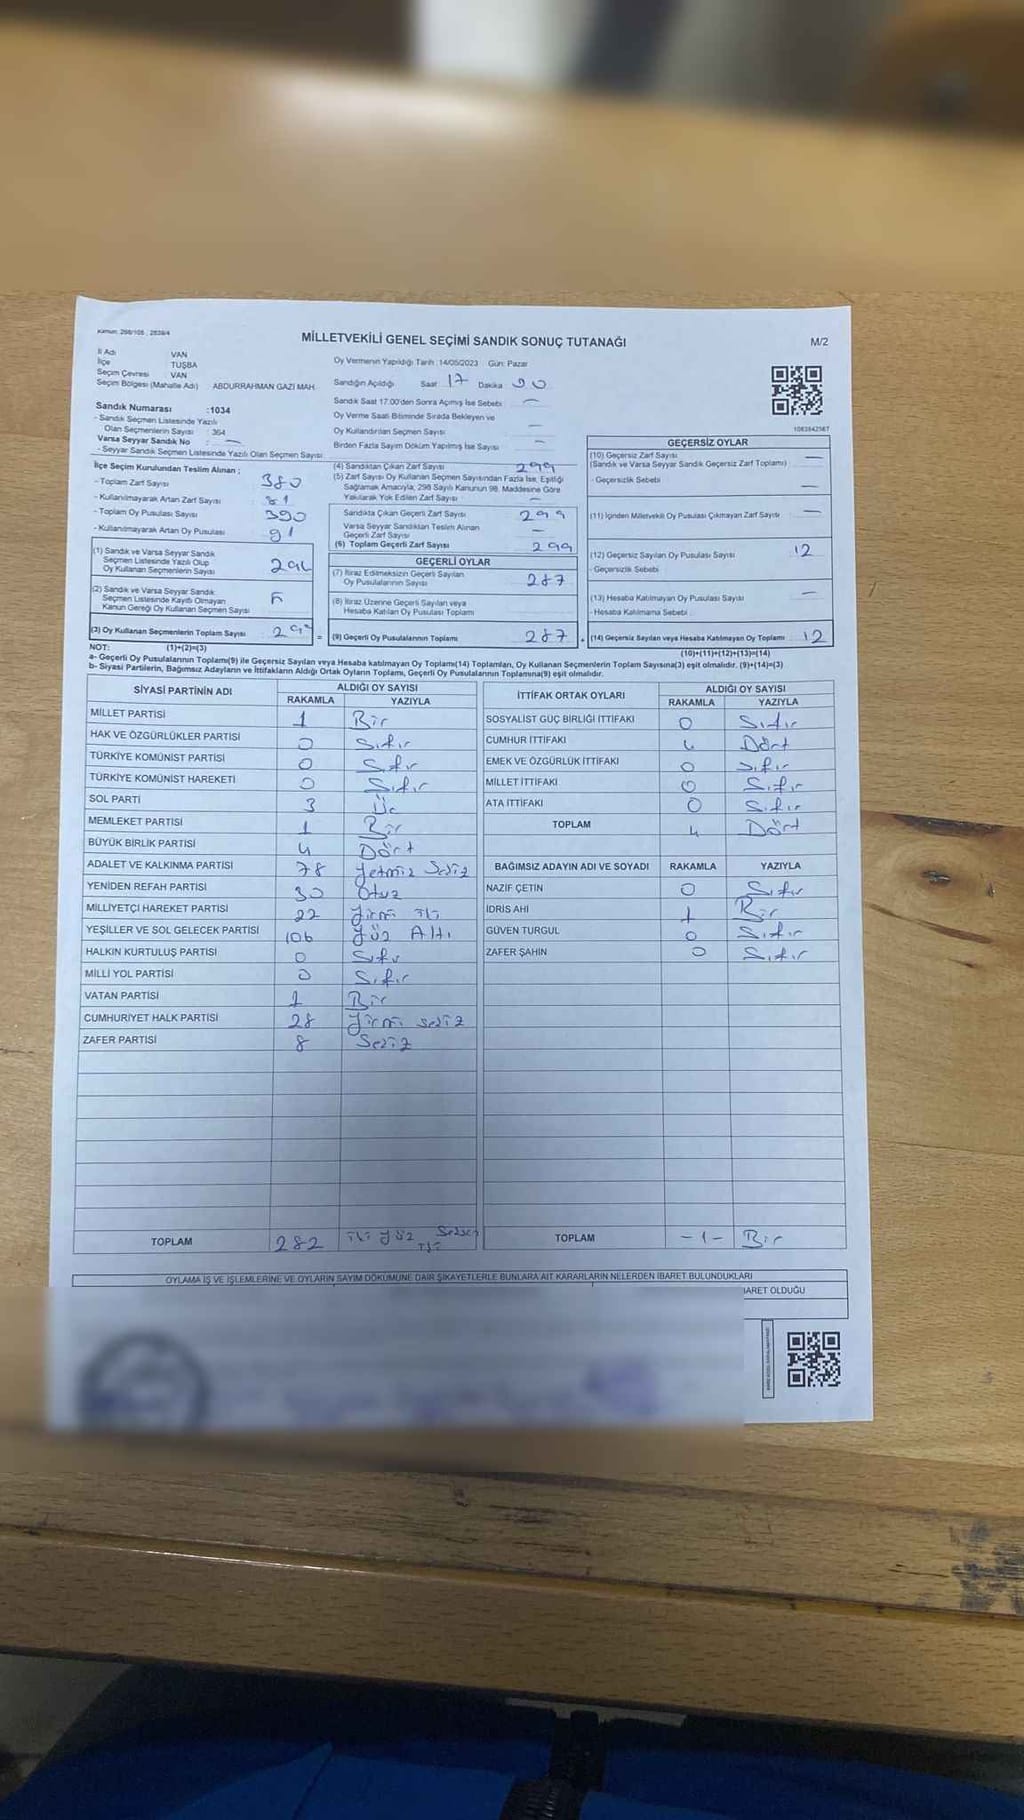 Kanun: 298/105 , 2839/4
MİLLETVEKİLİ GENEL SEÇİMİ SANDIK SONUÇ TUTANAĞI
M/2
İl Adı VAN
İlçe TUŞBA
Seçim Çevresi VAN
Seçim Bölgesi (Mahalle Adı) ABDURRAHMAN GAZİ MAH.
Sandık Numarası :1034
- Sandık Seçmen Listesinde Yazılı
Olan Seçmenlerin Sayısı : 364
Varsa Seyyar Sandık No : —
- Seyyar Sandık Seçmen Listesinde Yazılı Olan Seçmen Sayısı
Oy Vermenin Yapıldığı Tarih :14/05/2023 Gün: Pazar
Sandığın Açıldığı Saat 17 Dakika
Sandık Saat 17.00'den Sonra Açılmış İse Sebebi : —
Oy Verme Saati Bitiminde Sırada Bekleyen ve
Oy Kullandırılan Seçmen Sayısı : —
Birden Fazla Sayım Döküm Yapılmış İse Sayısı : —
1083842587
İlçe Seçim Kurulundan Teslim Alınan ;
- Toplam Zarf Sayısı : 380
- Kullanılmayarak Artan Zarf Sayısı : 81
- Toplam Oy Pusulası Sayısı : 390
- Kullanılmayarak Artan Oy Pusulası : 91
(1) Sandık ve Varsa Seyyar Sandık
Seçmen Listesinde Yazılı Olup
Oy Kullanan Seçmenlerin Sayısı
(2) Sandık ve Varsa Seyyar Sandık
Seçmen Listesinde Kayıtlı Olmayan
Kanun Gereği Oy Kullanan Seçmen Sayısı
(3) Oy Kullanan Seçmenlerin Toplam Sayısı 299 =
(4) Sandıktan Çıkan Zarf Sayısı 299
(5) Zarf Sayısı Oy Kullanan Seçmen Sayısından Fazla İse, Eşitliği
Sağlamak Amacıyla; 298 Sayılı Kanunun 98. Maddesine Göre
Yakılarak Yok Edilen Zarf Sayısı : —
Sandıkta Çıkan Geçerli Zarf Sayısı : 299
Varsa Seyyar Sandıktan Teslim Alınan
Geçerli Zarf Sayısı : —
(6) Toplam Geçerli Zarf Sayısı 299
GEÇERLİ OYLAR
(7) İtiraz Edilmeksizin Geçerli Sayılan
Oy Pusulalarının Sayısı : 287
(8) İtiraz Üzerine Geçerli Sayılan veya
Hesaba Katılan Oy Pusulası Toplamı
(9) Geçerli Oy Pusulalarının Toplamı : 287 +
GEÇERSİZ OYLAR
(10) Geçersiz Zarf Sayısı : —
(Sandık ve Varsa Seyyar Sandık Geçersiz Zarf Toplamı)
- Geçersizlik Sebebi : —
(11) İçinden Milletvekili Oy Pusulası Çıkmayan Zarf Sayısı : —
(12) Geçersiz Sayılan Oy Pusulası Sayısı : 12
- Geçersizlik Sebebi
(13) Hesaba Katılmayan Oy Pusulası Sayısı : —
- Hesaba Katılmama Sebebi
(14) Geçersiz Sayılan veya Hesaba Katılmayan Oy Toplamı : 12
NOT: (1)+(2)=(3)
(10)+(11)+(12)+(13)=(14)
a- Geçerli Oy Pusulalarının Toplamı(9) ile Geçersiz Sayılan veya Hesaba katılmayan Oy Toplamı(14) Toplamları, Oy Kullanan Seçmenlerin Toplam Sayısına(3) eşit olmalıdır. (9)+(14)=(3)
b- Siyasi Partilerin, Bağımsız Adayların ve İttifakların Aldığı Ortak Oyların Toplamı, Geçerli Oy Pusulalarının Toplamına(9) eşit olmalıdır.
SİYASİ PARTİNİN ADI ALDIĞI OY SAYISI
RAKAMLA YAZIYLA
MİLLET PARTİSİ 1 Bir
HAK VE ÖZGÜRLÜKLER PARTİSİ 0 Sıfır
TÜRKİYE KOMÜNİST PARTİSİ 0 Sıfır
TÜRKİYE KOMÜNİST HAREKETİ 0 Sıfır
SOL PARTİ 3 Üç
MEMLEKET PARTİSİ 1 Bir
BÜYÜK BİRLİK PARTİSİ 4 Dört
ADALET VE KALKINMA PARTİSİ 78 Yetmiş Sekiz
YENİDEN REFAH PARTİSİ 30 Otuz
MİLLİYETÇİ HAREKET PARTİSİ 22 Yirmi iki
YEŞİLLER VE SOL GELECEK PARTİSİ 106 Yüz Altı
HALKIN KURTULUŞ PARTİSİ 0 Sıfır
MİLLİ YOL PARTİSİ 0 Sıfır
VATAN PARTİSİ 1 Bir
CUMHURİYET HALK PARTİSİ 28 Yirmi sekiz
ZAFER PARTİSİ 8 Sekiz
TOPLAM 282 iki yüz Seksen iki
İTTİFAK ORTAK OYLARI ALDIĞI OY SAYISI
RAKAMLA YAZIYLA
SOSYALİST GÜÇ BİRLİĞİ İTTİFAKI 0 Sıfır
CUMHUR İTTİFAKI 4 Dört
EMEK VE ÖZGÜRLÜK İTTİFAKI 0 Sıfır
MİLLET İTTİFAKI 0 Sıfır
ATA İTTİFAKI 0 Sıfır
TOPLAM 4 Dört
BAĞIMSIZ ADAYIN ADI VE SOYADI RAKAMLA YAZIYLA
NAZİF ÇETİN 0 Sıfır
İDRİS AHİ 1 Bir
GÜVEN TURGUL 0 Sıfır
ZAFER ŞAHİN 0 Sıfır
TOPLAM -1- Bir
OYLAMA İŞ VE İŞLEMLERİNE VE OYLARIN SAYIM DÖKÜMÜNE DAİR ŞİKAYETLERLE BUNLARA AİT KARARLARIN NELERDEN İBARET BULUNDUKLARI
OLDUĞU